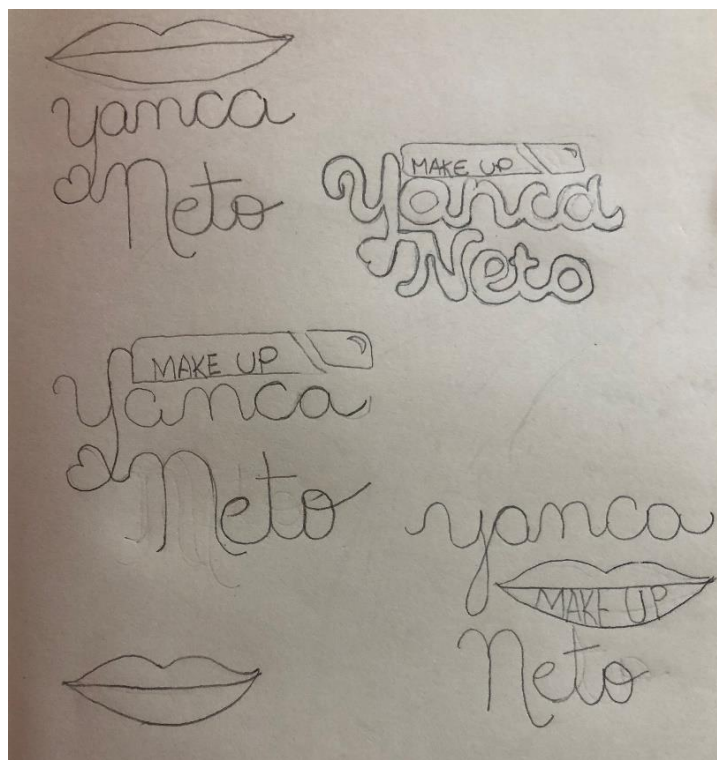 yanca
Neto
MAKE UP
Yanca
Neto
MAKE UP
Yanca
Neto
yanca
MAKE UP
Neto